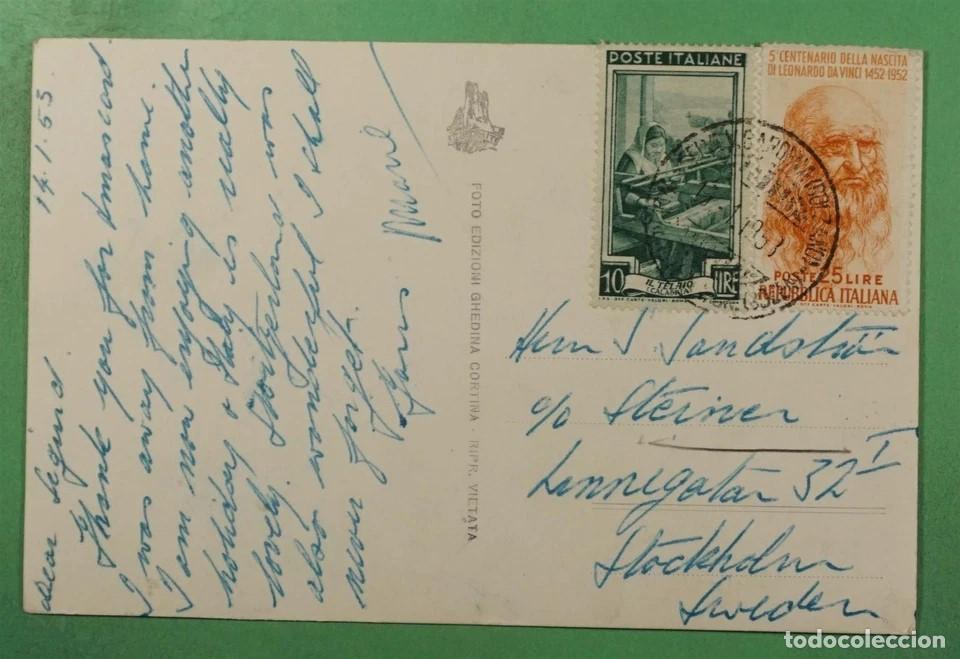 14.1.53
Dear Sigurd
Thank you for
I was away from home.
I am now enjoying another
holiday & Italy is really
lovely. Switzerland was
also wonderful I shall
never forget.
Yours
FOTO EDIZIONI GHEDINA CORTINA - RIPR. VIETATA
POSTE ITALIANE
10 LIRE
IL TELAIO
(CALABRIA)
I.P.S. OFF. CARTE - VALORI - ROMA
5° CENTENARIO DELLA NASCITA
DI LEONARDO DA VINCI 1452-1952
POSTE 25 LIRE
REPUBBLICA ITALIANA
1953
Herr S. Sandström
c/o Steiner
Linnégatan 32 I
Stockholm
Sweden
todocoleccion.net